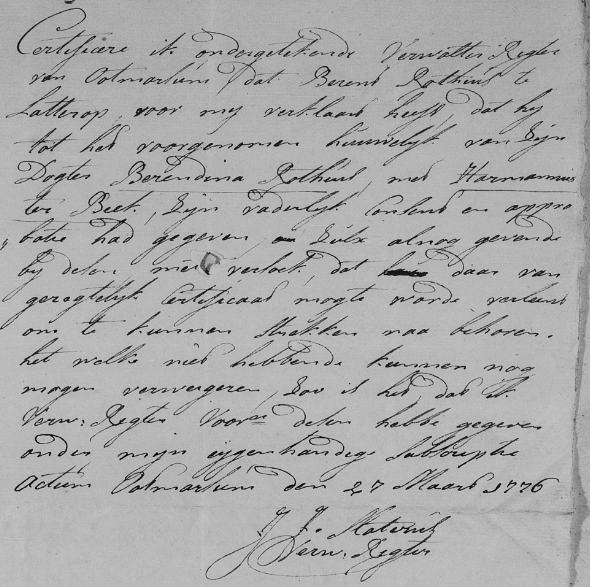 Certificere ik ondergetekende Verwalter Rigter
van Ootmarsum dat Berend Rothuis te
Lattrop, voor mij verklaard heeft, dat hij
tot het voorgenomen huuwelijk van Zijn
Dogter Berendina Rothuis, met Harmannus
ter Beek, Zijn vaderlijk Consent en appro
batie had gegeven, Zulx alnog gevende
bij desen, met versoek, dat daar van
geregtelijk Certificaat mogte worde verleent
om te kunnen strekken naa behoren.
het welke niet hebbende kunnen nog
mogen verweigeren, Zoo is het, dat Ik
Verw: Rigter Voorn. desen hebbe gegeven
onder mijn eygenhandige Subscriptie
Actum Ootmarsum den 27 Maart 1776
J J.
Verw: Rigter